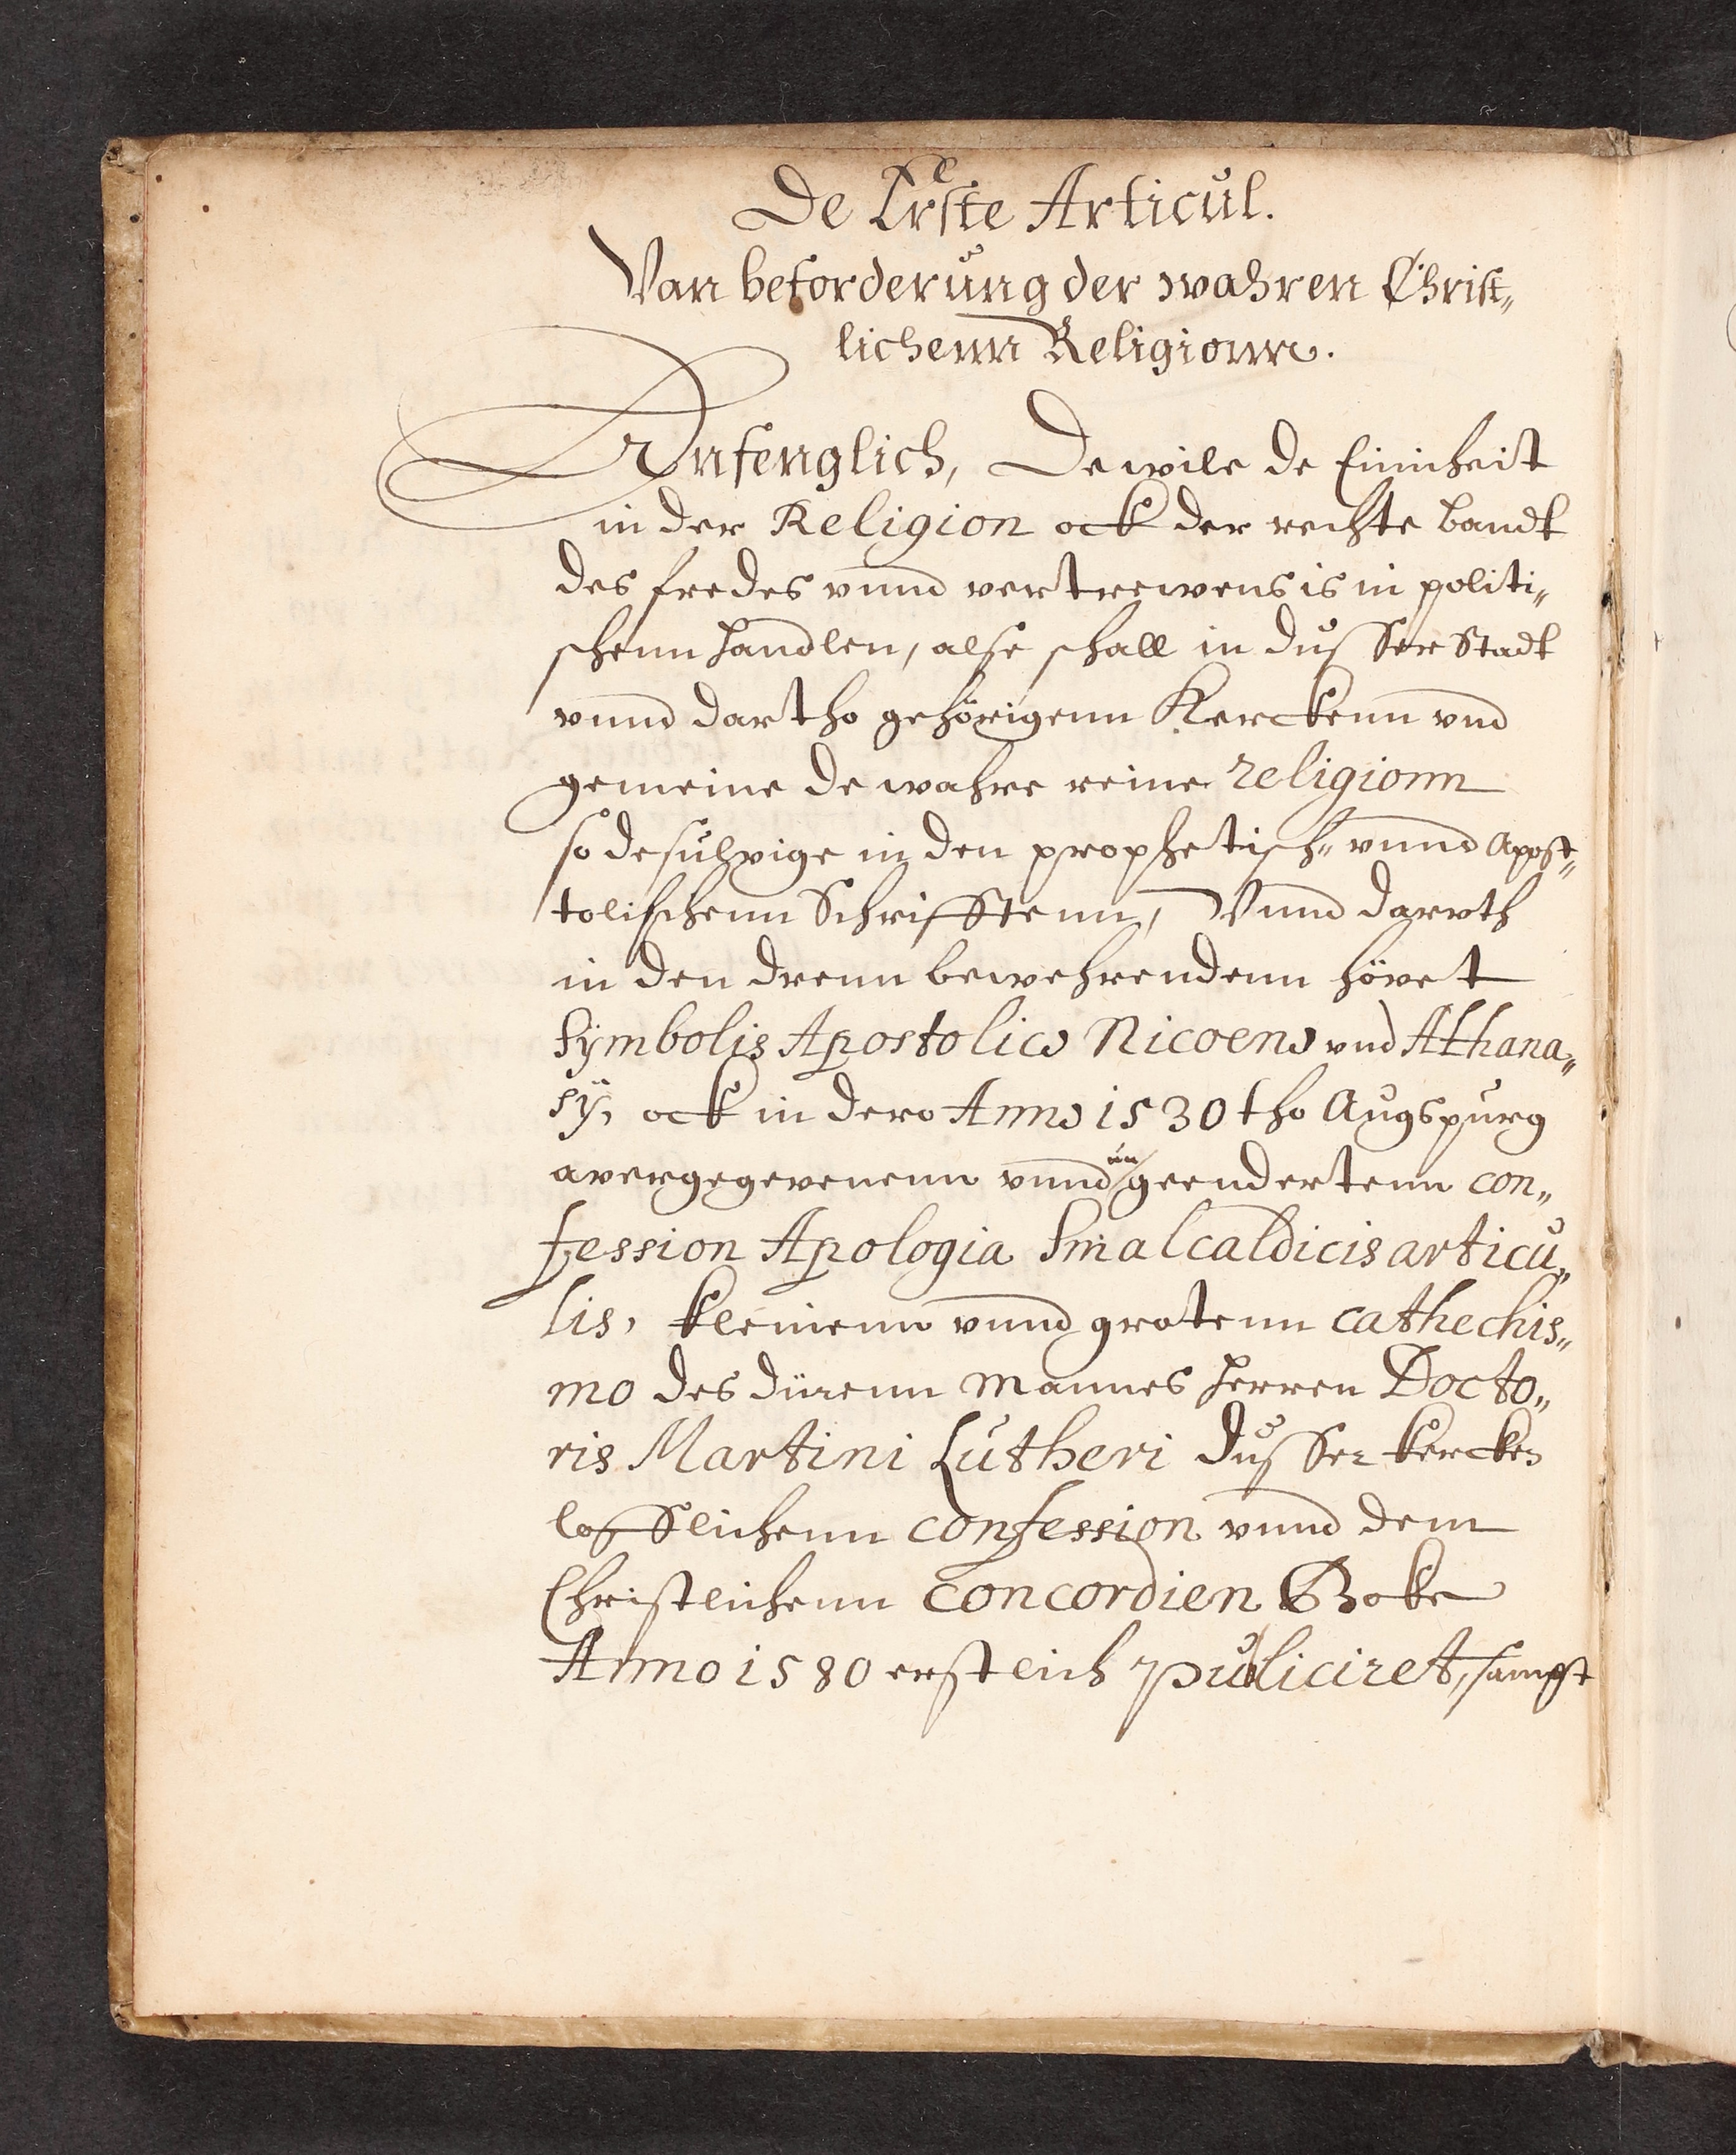 De Erste Articul.
Van beforderung der wahren Christ„
lichenn Religionn.
Anfenglich, Dewile de Einicheit
in der Religion ock der rechte bandt
des fredes vnnd vertrewens is in politi„
schenn handlen, alse schall in dusser Stadt
vnnd dartho gehörigenn Kerckenn vnd
gemeine de wahre reine religionn
so desulvige in den prophetisch„ vnnd Apost„
tolischenn Schrifftenn, Vnnd daruth
in den drenn bewehrendenn hövet
Symbolis Apostolico Nicoeno vnd Athana„
sÿ, ock in dero Anno 1530 tho Augspurg
avergegevenenn vnnd ungeendertenn con„
fession Apologia Smalcaldicis articu„
lis, kleinenn vnnd grotenn cathechis„
mo des dürenn Mannes Herren Docto„
ris Martini Lutheri dusser kercken
lofflichenn confession vnnd dem
Christlichenn Concordien Boke
Anno 1580 erstlich publiciret, sampt